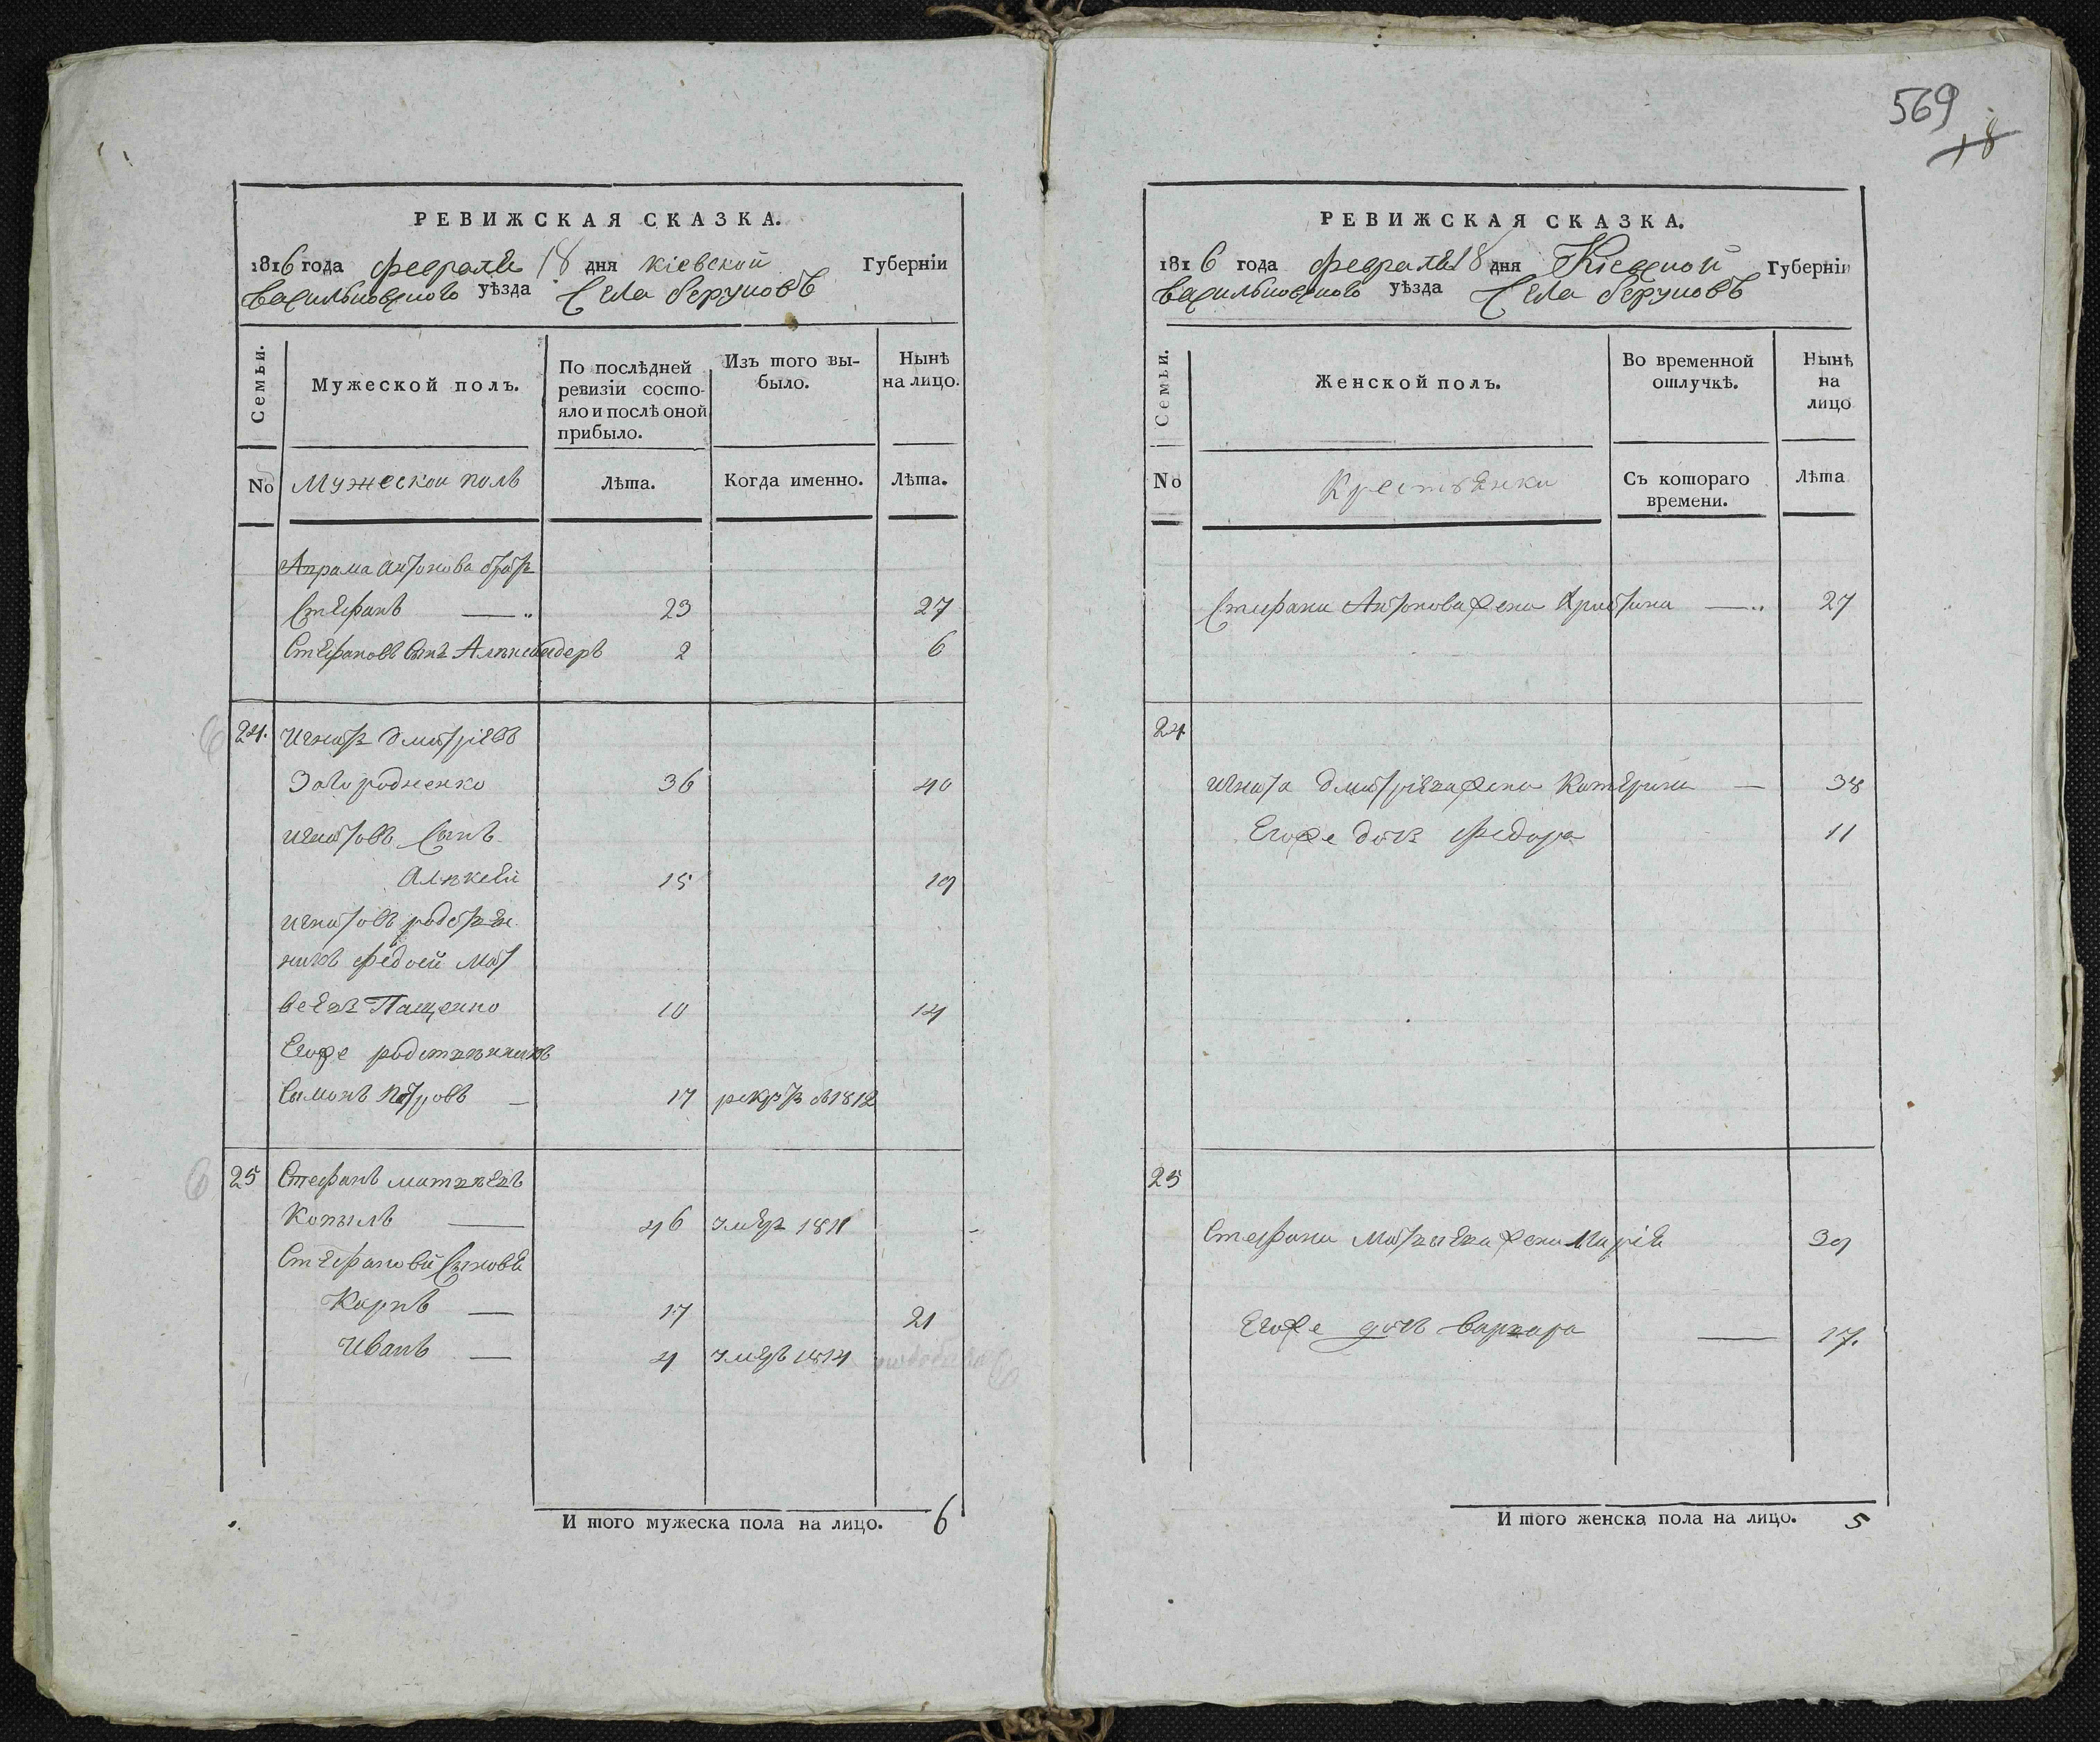 569
18
РЕВИЖСКАЯ СКАЗКА.
1816 года февраля 18 дня Кіевской Губерніи
Васильковского уѣзда Села
Семьи.
Мужеской полъ.
По послѣдней ревизіи состо-
яло и послѣ оной
прибыло.
Изъ того вы-
было.
Нынѣ
на лицо.
No
Мужескои полъ
Лѣта.
Когда именно.
Лѣта.
Антонова братъ
Стефанъ 23 27
Стефановъ сынъ Алексендеръ 2 6
24. Игнатъ Дмитріевъ
Загородненко 36 40
Игнатовъ Сынъ
Алексей 15 19
Игнатовъ родствен
никъ Федосей Мат
веевъ Пащенко 10 14
Егоже родственникъ
Симонъ Петровъ 17 рекрутъ в 1812
25 Стефанъ Матвеевъ
Копылъ 46 умеръ 1811
Стефановы Сыновя
Карпъ 17 21
Иванъ 4 умеръ 1814
И того мужеска пола на лицо. 6
РЕВИЖСКАЯ СКАЗКА.
1816 года февраля 18 дня Кіевской Губерніи
Васильковского уѣзда Села
Семьи.
Женской полъ.
Во временной
отлучкѣ.
Нынѣ
на
лицо
No
Крестянки
Съ котораго
времени.
Лѣта
Стефана Антонова жена Христина 27
24
Игната Дмитріева жена Катерина 38
Егоже дочь Федора 11
25
Стефана Матвеева жена Марія 39
Егоже дочь Варвара 17.
И того женска пола на лицо. 5